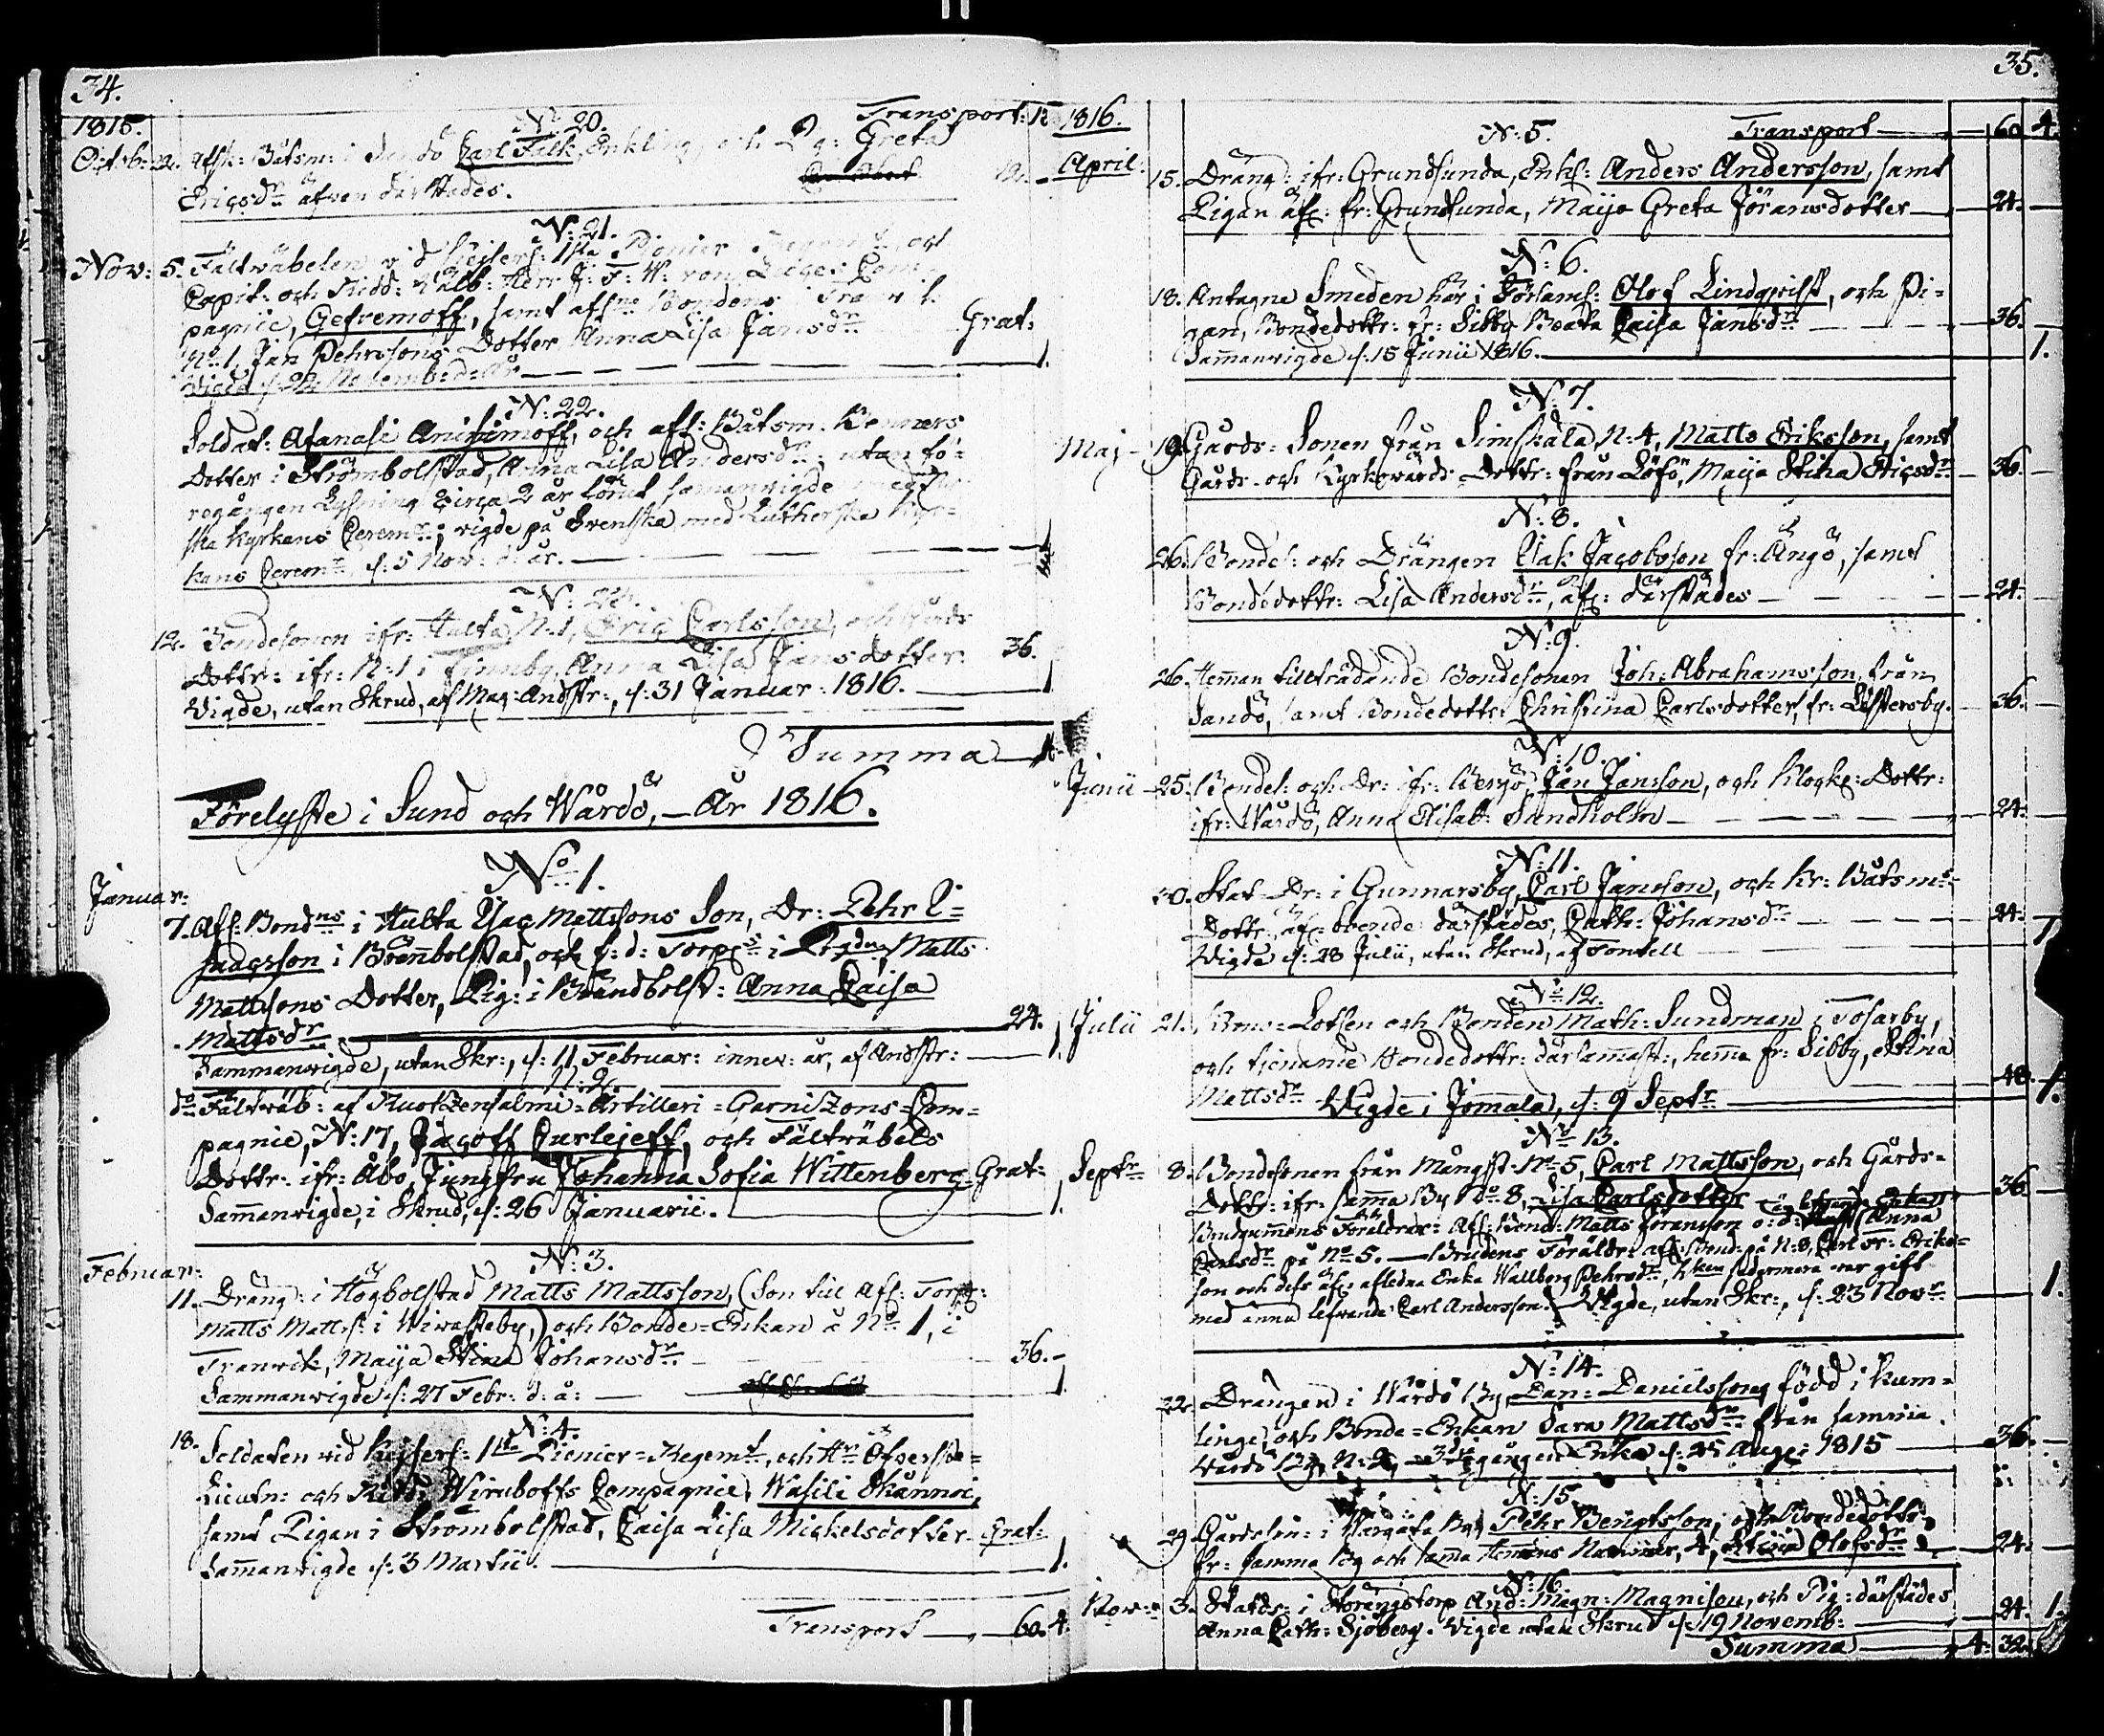 34.
1815.
N:o 20. Transport: 12
Octob: 22. Afsk: Båtsm: i Sandö Carl Falk, Enkling, och Pig: Greta
Ericsdr äfven därstädes.
N:o 21.
Nov: 5. Fältwäbelen vid Keiserl: 1sta Pionier Regemt, och
Capit: och Ridd: Välb: Herr J: F: W: von Com-
pagnie, Gefremoff, samt afne Bondens i Tranvik
No 1, Jan Pehrssons Dotter Anna Lisa Jansdr Grat:
Vigde d: 22 Novemb: d: år 1.
N:o 22.
Soldat: Afanasi Anisimoff, och afl: Båtsm: Renners
Dotter i Strömbolstad, Anna Lisa Andersdr: utan fö-
regången Lysning Circa 2 år förut samanvigde
ska Kyrkans Cerem:r; vigde på Svenska med Lutherska Kyr-
kans Cerem:r d: 5 Nov: d: år.
N: 23.
12. Bondesonen ifr: Hulta N:1, Eric Carlsson, och Gårds
Dottr: ifr: N:1 i Finnby, Anna Lisa Jansdotter 36.
Vigde, utan Skrud, af Mag: Andstr:, d: 31 Januar: 1816. 1
Summa
Förelyste i Sund och Wårdö, — År 1816.
No 1.
Januar:
7. Afl: Bondns i Hulta Isac Mattssons Son, Dr: Pehr I-
sacsson i Brännbolstad, och f: d: Torps i Matts
Mattssons Dotter, Pig: i Brändbolst: Anna Caisa
Mattsdr 24.
Sammanvigde, utan Skr:, d: 11 Februar: innev: år, af Andstr: 1.
N: 2.
do Fältväb: af Ruotzensalmi-Artilleri-Garnizons-Com-
pagnie, N: 17, Jacoff Curlejeff, och Fältväbels
Dottr: ifr: Åbo, Jungfru Johanna Sofia Wittenberg Grat:
Samanvigde, i Skrud, d: 26 Januarii. 1.
N: 3.
Februar:
11. Dräng: i Högbolstad Matts Mattsson, (Son til Afl: Torp:
Matts Matts: i Wivastby,) och Bonde-Enkan å No 1, i
Tranvik, Maija Stina Johansdr 36.-
Sammanvigde d: 27 Febr: d: å: 1.
N: 4.
18. Soldaten vid Kejserl: 1sta Pionier-Regemt, och Hr Öfverste-
Lieutn: och Ridd: Wiruboffs Compagnie, Wasili Skånnoi,
samt Pigan i Strömbolstad, Caisa Lisa Mickelsdotter Grat:
Samanvigde d: 3 Martii. 1.
Transport 60. 4.
35.
1816.
N: 5. Transport 60 4.
April:
15. Dräng: ifr: Grundsunda, Enkl: Anders Andersson, samt
Pigan äf: fr: Grundsunda, Maija Greta Jöransdotter 24.
N: 6.
18. Antagne Smeden här i Församl: Olof Lindqvist, och Pi-
gan, Bondedottr: fr: Sibby Beata Caisa Jansdr 36.
Samanvigde d: 15 Junii 1816. 1.
N: 7.
Maj 19. Gårds-Sonen från Simskäla N: 4, Matts Eriksson, samt
Gårds- och Kyrkovärds Dottr: från Löfö, Maija Stina Stigsdr 36.
N: 8.
26. Bondes: och Drängen Isak Jacobsson fr: Ängö, samt
Bondedottr: Lisa Andersdr, äf: därstädes 24.
N: 9.
26. Hemman tilträdande Bondesonen Joh: Abrahamsson, från
Sandö, samt Bondedottr: Christina Carlsdotter, fr: Listersby. 36.
N: 10.
Junii 25. Bondes: och Dr: ifr: Bergö, Jan Jansson, och Klock: Dottr:
ifr: Wårdö, Anna Elisab: Sandholm 24.
N: 11.
30. Stat-Dr: i Gunnarsby, Carl Jansson, och Kr: Båtsms-
Dottr:, äf: boende därstädes, Cath: Johansdr 24.
Vigde d: 28 Julii, utan Skrud, af Fontell 1
N: 12.
Julii 21. Kron-Lotsen och Bonden Math: Sundman i Tosarby,
och tienande Bondedottr: därsammast:, hema fr: Sibby, Stina
Mattsdr 48.
Vigde i Jomala, d: 9 Septr 1.
No 13.
Septr 8. Bondesonen från Mångst: No 5, Carl Mattsson, och Gårds-
Dottr: ifr: sama By No 8, Lisa Carlsdotter 36
Brudgummens Föräldrar: Afl: Bond: Matts Göransson o: d: Anna
Carlsdr på No 5. — Brudens Föräldr: afl: Bond: på N: 8, Carl Fr: Eriks-
son och dess äf: aflidna Enka Wallborg Pehrsdr, hken sedermera var gift
med ännu lefvande Carl Andersson. Vigde, utan Skr:, d: 23 Novr 1.
N: 14.
22. Drängen i Wårdö By, Dan: Danielsson, född i Kum-
linge, och Bonde-Enkan Sara Mattsdr från samma
Wårdö By, N: 2, Enka d: 25 Aug: 1815 36.
N: 15.
29. Gårdsson: i Wargata By, Pehr Bengtsson, och Bondedottr:
fr: samma By och sama Hemans Nummer, 4, Stina Olofsdr 24.
N: 16.
Nov: 3. Statdr: i Storängstorp And: Magn: Magnison, och Pig: därstädes
Anna Cath: Sjöberg. Vigde utan Skrud d: 19 Novemb: 24. 1.
Summa 4: 32